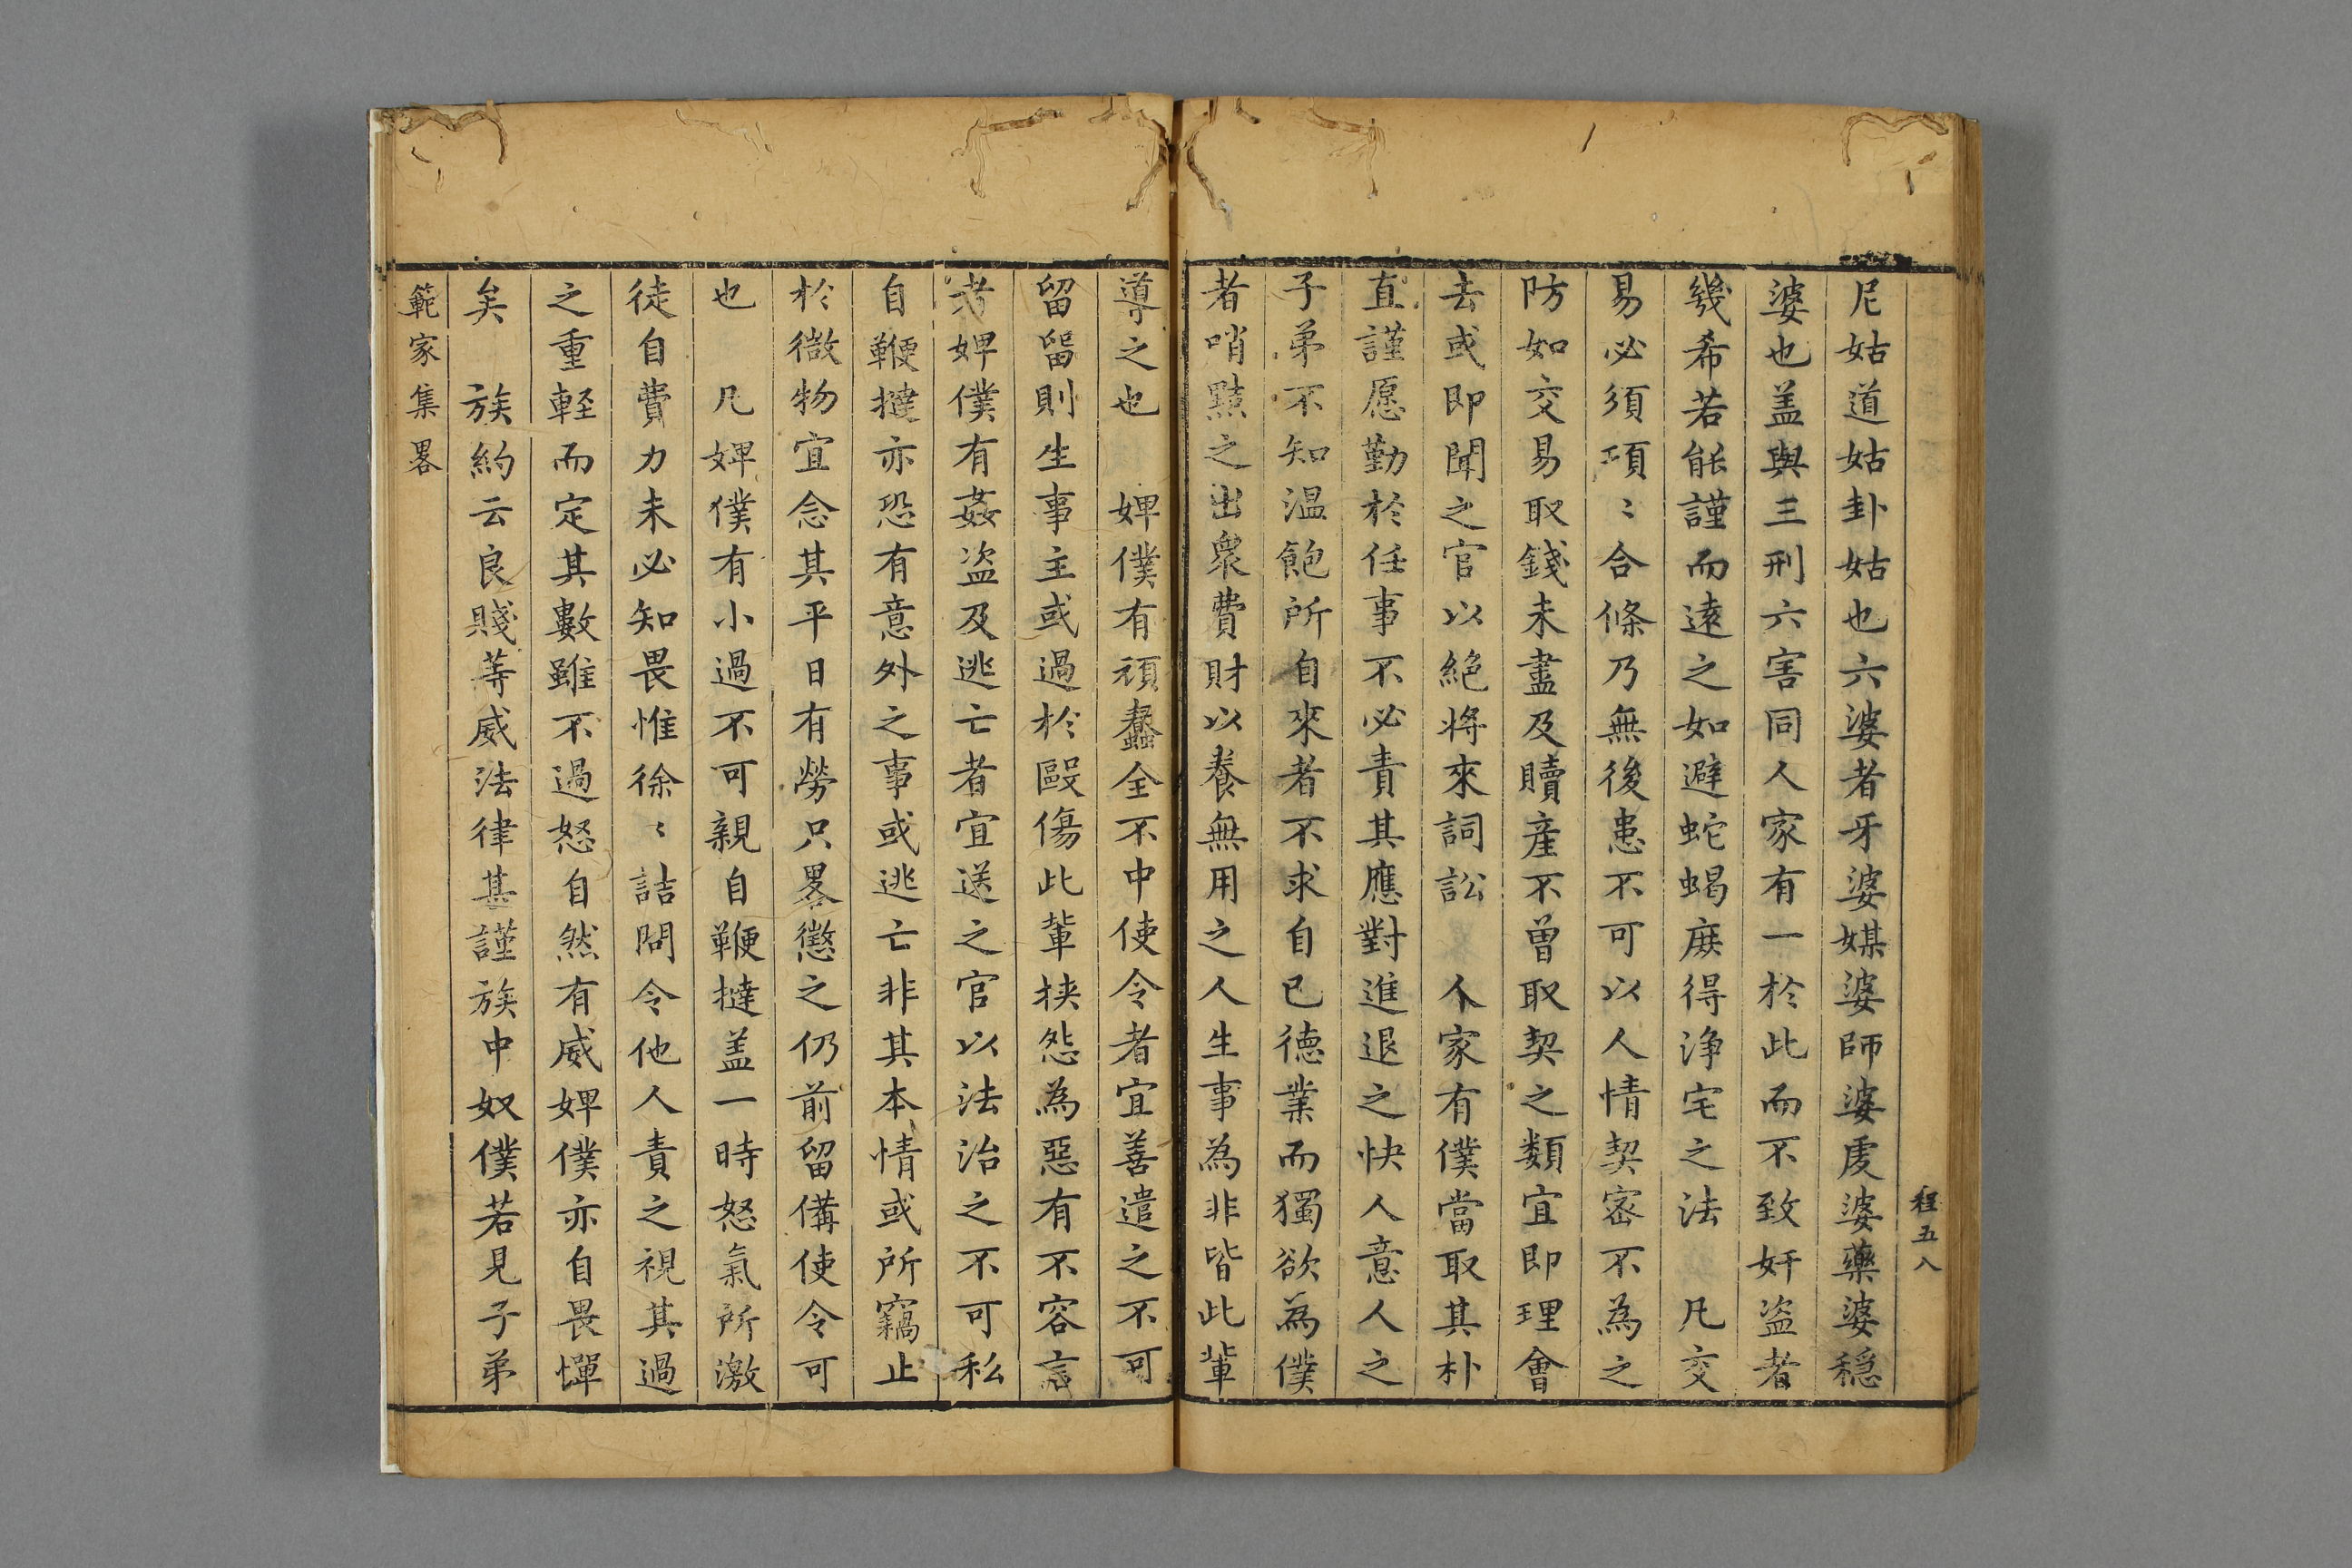 程五八
尼姑道姑卦姑也六婆者牙婆媒婆師婆虔婆藥婆穏
婆也盖與三刑六害同人家有一於此而不致奸盗者
㡬希若能謹而遠之如避蛇蝎庻得浄宅之法　凡交
易必須項〻合條乃無後患不可以人情契宻不為之
防如交易取錢未盡及贖産不曽取契之類宜即理會
去或即聞之官以絶将來詞訟　人家有僕當取其朴
直謹愿勤於任事不必責其應對進退之快人意人之
子弟不知温飽所自來者不求自已徳業而獨欲為僕
者哨黠之出衆費財以養無用之人生事為非皆此軰
導之也　婢僕有頑蠢全不中使令者宜善遣之不可
留留則生事主或過於毆傷此軰挟怨為惡有不容言
者婢僕有姦盗及逃亡者宜送之官以法治之不可私
自鞭撻亦恐有意外之事或逃亡非其本情或所竊止
於微物宜念其平日有勞只畧懲之仍前留備使令可
也　凡婢僕有小過不可親自鞭撻盖一時怒氣所激
徒自費力未必知畏惟徐〻詰問令他人責之視其過
之重輕而定其數雖不過怒自然有威婢僕亦自畏憚
矣　族約云良賤等威法律甚謹族中奴僕若見子弟
範家集畧